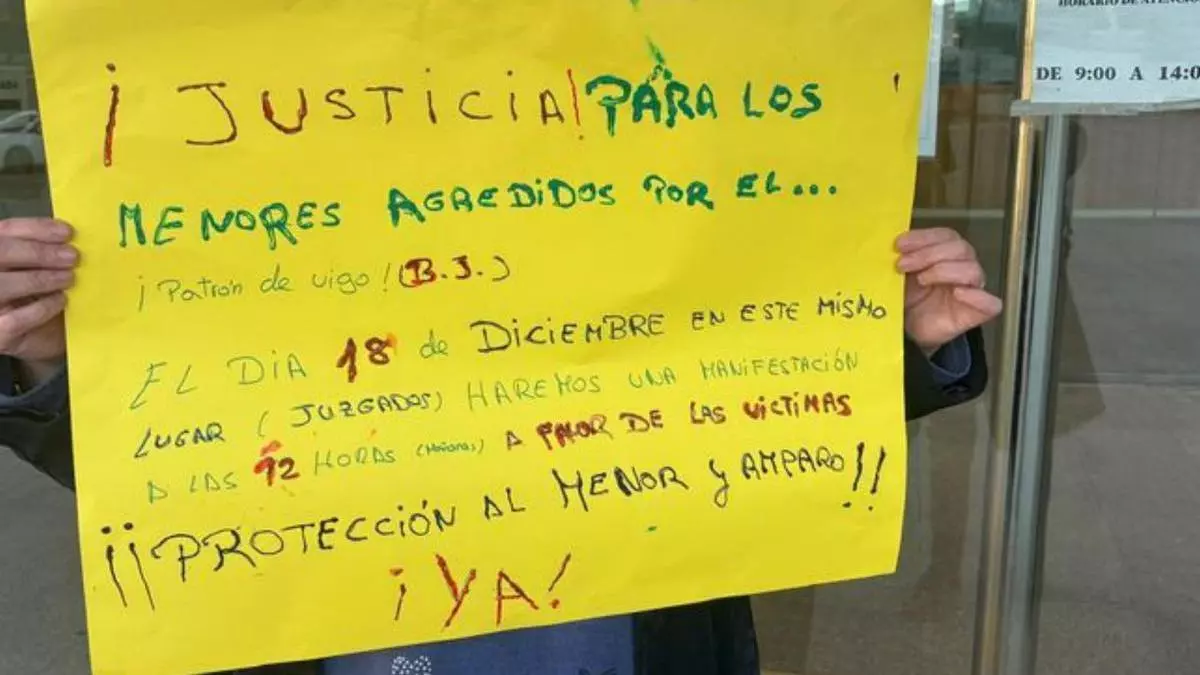 ¡JUSTICIA! PARA LOS
MENORES AGREDIDOS POR EL...
¡Patrón de vigo! (B.J.)
EL DIA 18 de DICIEMBRE EN ESTE MISMO
LUGAR (JUZGADOS) HAREMOS UNA MANIFESTACIÓN
A LAS 12 HORAS (Mañana) A FAVOR DE LAS VICTIMAS
¡¡PROTECCIÓN AL MENOR Y AMPARO!!
¡YA!
HORARIO DE ATENCIÓ
DE 9:00 A 14:0